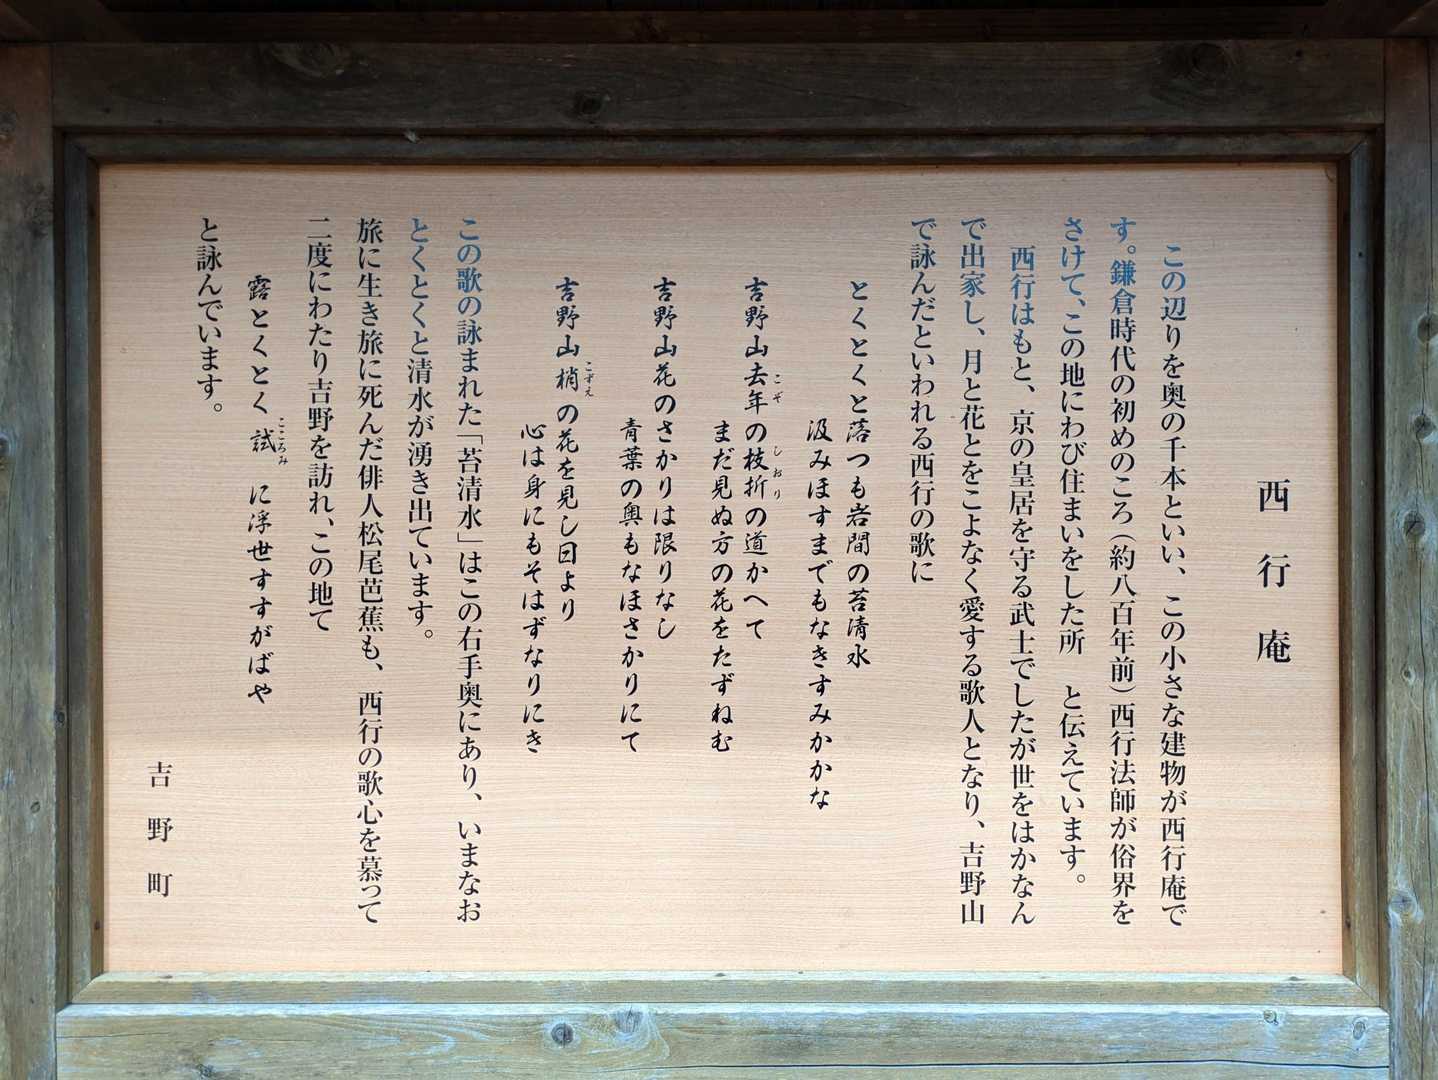 西行庵
この辺りを奥の千本といい、この小さな建物が西行庵で
す。鎌倉時代の初めのころ(約八百年前)西行法師が俗界を
さけて、この地にわび住まいをした所　と伝えています。
西行はもと、京の皇居を守る武士でしたが世をはかなん
で出家し、月と花とをこよなく愛する歌人となり、吉野山
で詠んだといわれる西行の歌に
とくとくと落つる岩間の苔清水
汲みほすまでもなきすみかかな
吉野山去年の枝折の道かへて
まだ見ぬ方の花をたずねむ
吉野山花のさかりは限りなし
青葉の奥もなほさかりにて
吉野山梢の花を見し日より
心は身にもそはずなりにき
この歌の詠まれた「苔清水」はこの右手奥にあり、いまなお
とくとくと清水が湧き出ています。
旅に生き旅に死んだ俳人松尾芭蕉も、西行の歌心を慕って
二度にわたり吉野を訪れ、この地て
露とくとく試に浮世すすがばや
と詠んでいます。
吉野町